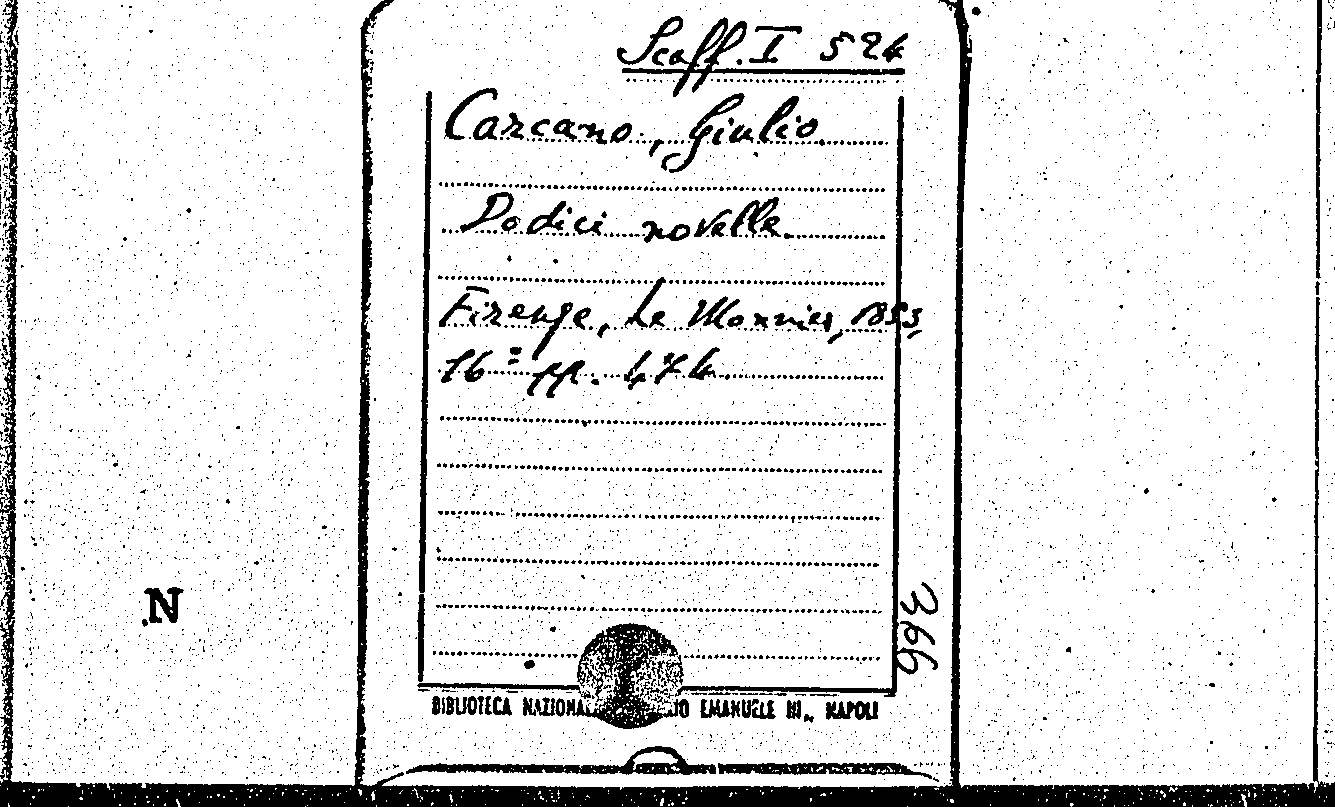 Scaff. I 524
Carcano, Giulio.
Dodici novelle.
Firenze, Le Monnier, 1853,
16º pp. 474
366
N
BIBLIOTECA NAZIONA IO EMANUELE III„ NAPOLI